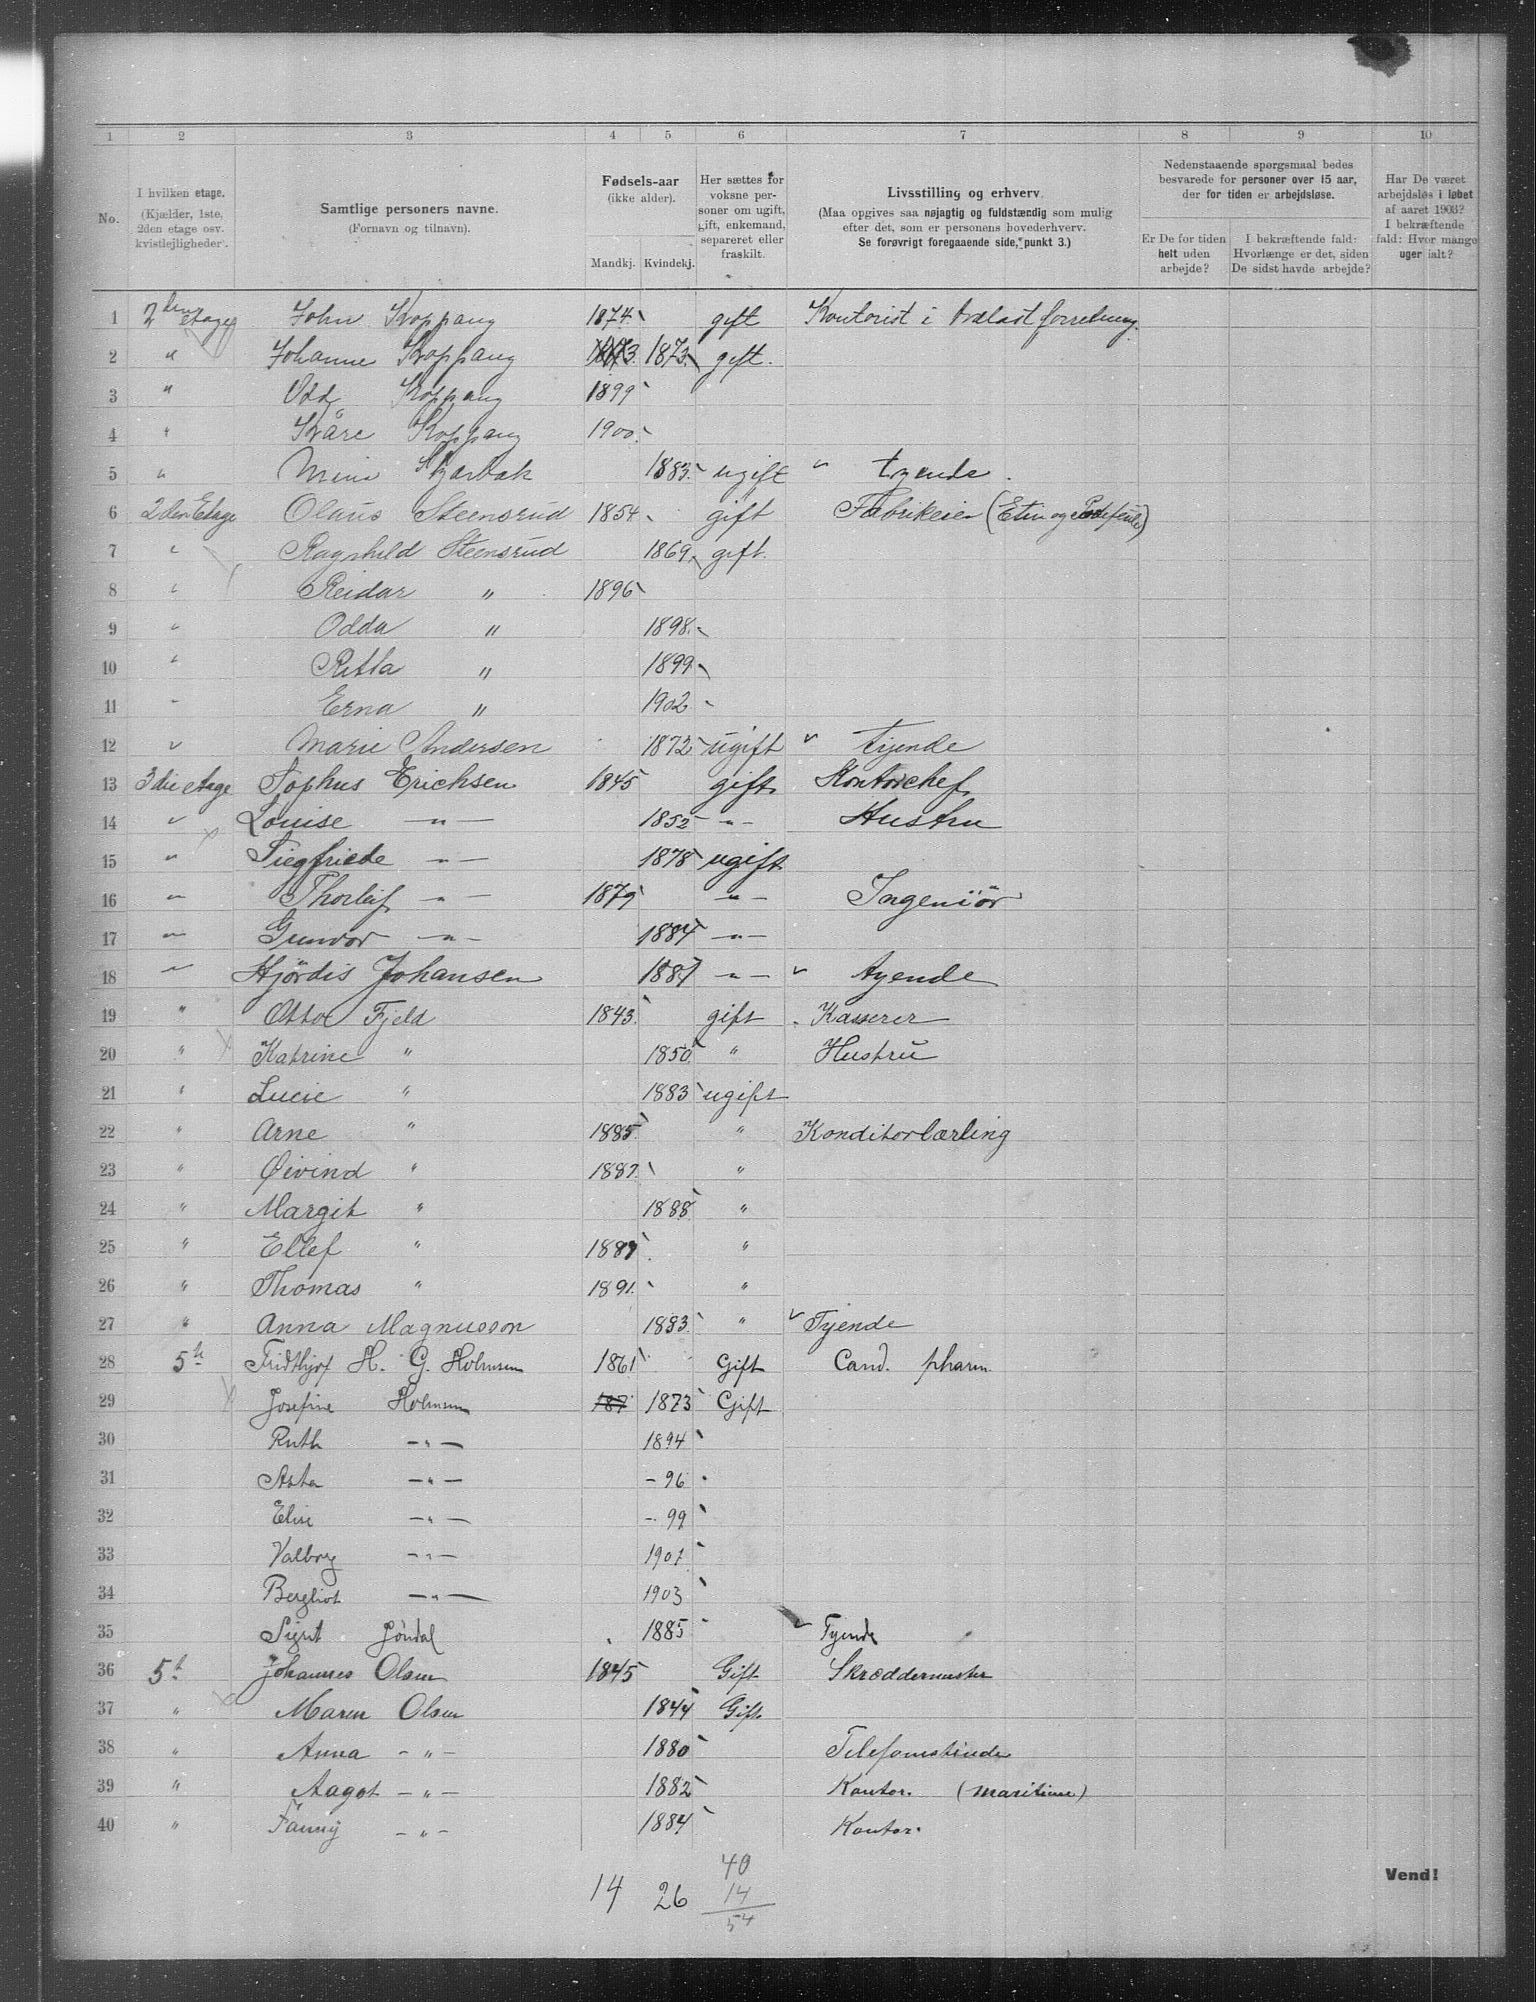 1 2 3 4 5 6 7 8 9 10
No.
I hvilken etage.
(Kjælder, 1ste,
2den etage osv.
kvistlejligheder).
Samtlige personers navne.
(Fornavn og tilnavn).
Fødsels-aar
(ikke alder).
Mandkj. Kvindekj.
Her sættes for
voksne per-
soner om ugift,
gift, enkemand,
separeret eller
fraskilt.
Livsstilling og erhverv.
(Maa opgives saa nøjagtig og fuldstændig som mulig
efter det, som er personens hovederhverv.
Se forøvrigt foregaaende side, punkt 3.)
Nedenstaaende spørgsmaal bedes
besvarede for personer over 15 aar,
der for tiden er arbejdsløse.
Er De for tiden
helt uden
arbejde?
I bekræftende fald:
Hvorlænge er det, siden
De sidst havde arbejde?
Har De været
arbejdsløs i løbet
af aaret 1903?
I bekræftende
fald: Hvor mange
uger ialt?
1 2den etage John Koppang 1874 gift Kontorist i
2 " Johanne Koppang 1873 1873 gift.
3 " Odd Koppang 1899
4 " Kåre Koppang 1900
5 " Mina 1883 ugift tyende
6 2den Etage Olaus Steensrud 1854 gift Fabrikeier (Etui og
7 " Ragnhild Steensrud 1869 gift.
8 " Reidar " 1896
9 " Odda " 1898
10 " " 1899
11 " Erna " 1902
12 " Marie Andersen 1872 ugift tyende
13 3die etage Sophus Erichsen 1845 gift Kontorchef
14 " Louise — " — 1852 — " — Hustru
15 " Siegfriede — " — 1878 ugift
16 " Thorleif — " — 1879 — " — Ingeniör
17 " Gunvor — " — 1884 — " —
18 " Hjördis Johansen 1887 — " — tyende
19 " Otto Fjeld 1843 gift Kasserer
20 " Katrine " 1850 " Hustru
21 " Lucie " 1883 ugift
22 " Arne " 1885 " Konditorlærling
23 " Øivind " 1887 "
24 " Margit " 1888 "
25 " Ellef " 1889 "
26 " Thomas " 1891 "
27 " Anna Magnusson 1883 " Tyende
28 5te Fridthjof H. G. Holmsen 1861 Gift Cand. pharm.
29 Josefine Holmsen 187 1873 Gift
30 Ruth — " — 1894
31 Asta — " — - 96
32 Elise — " — - 99
33 Valborg — " — 1901
34 Bergliot — " — 1903
35 Sigrit Jøndal 1885 Tyende
36 5te Johannes Olsen 1845 Gift Skræddermester
37 " Maren Olsen 1844 Gift
38 " Anna — " — 1880 Telefonistinde
39 " Aagot — " — 1882 Kontor. (maritime)
40 " Fanny — " — 1884 Kontor.
14 26
40
14
54
Vend!